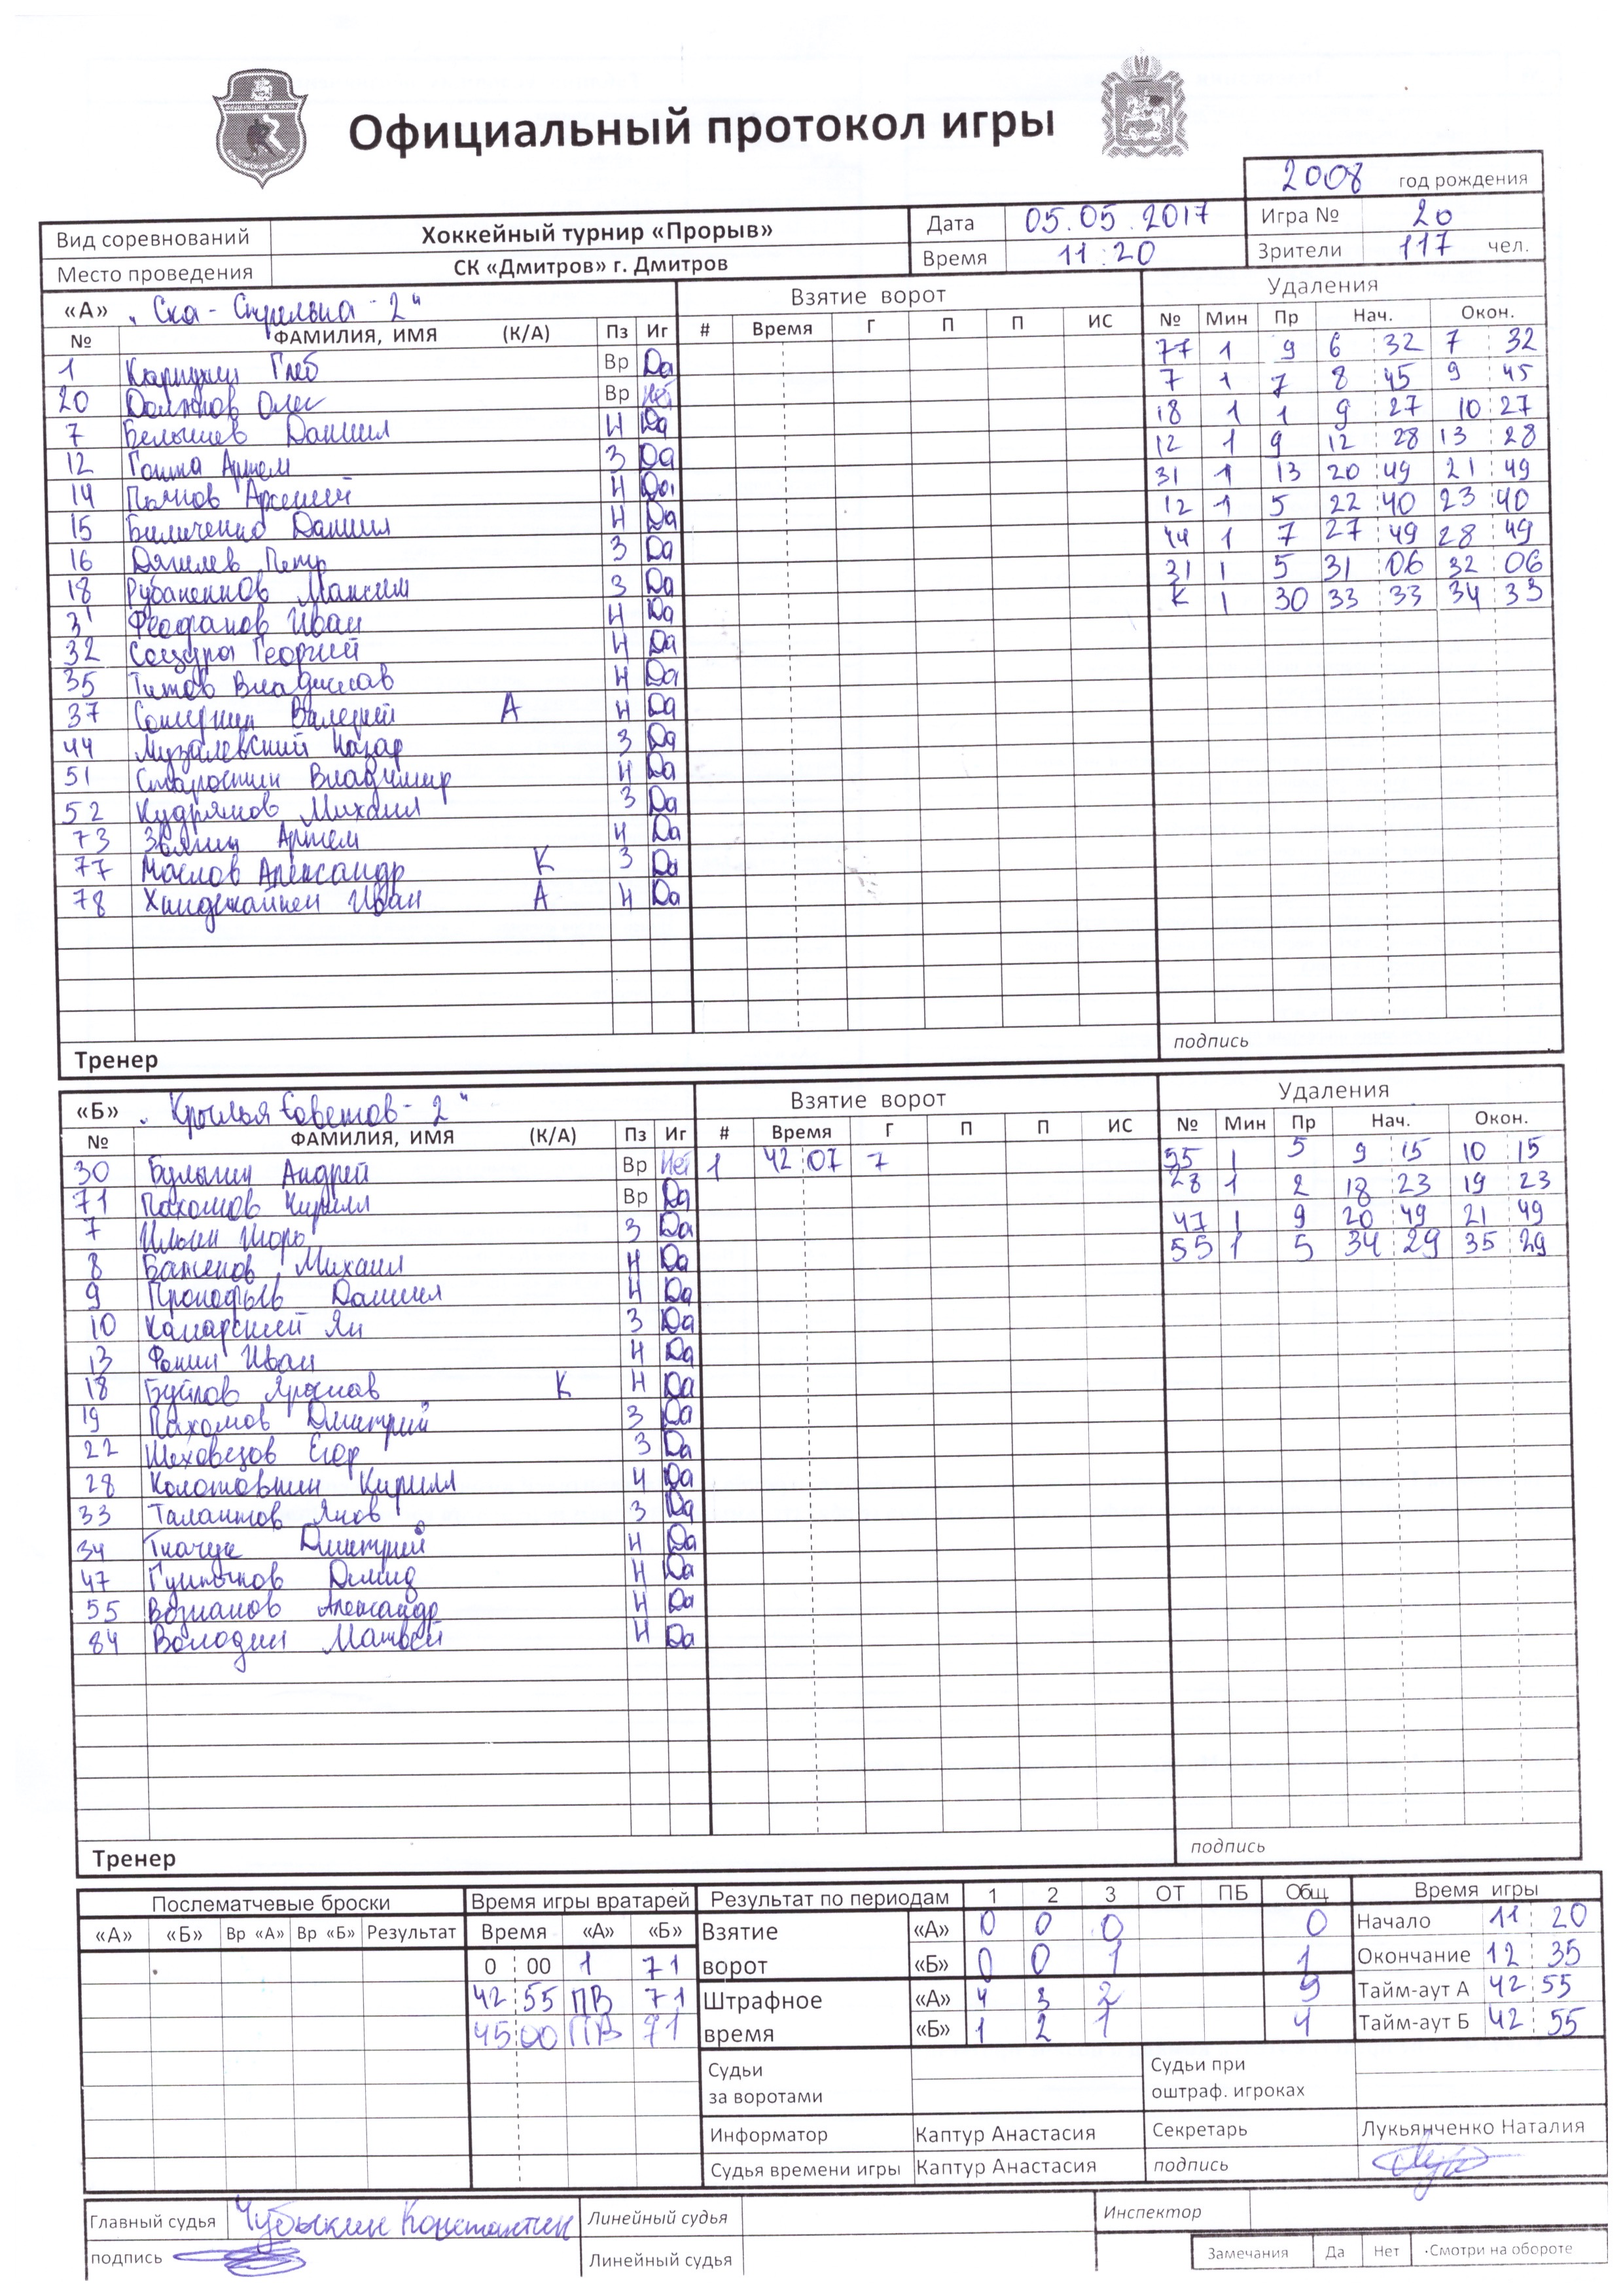 Официальный протокол игры
2008 год рождения
Вид соревнований Хоккейный турнир «Прорыв» Дата 05.05.2017 Игра № 20
Место проведения СК «Дмитров» г. Дмитров Время 11:20 Зрители 117 чел.
«А» "Ска-Стрельна-2" Взятие ворот Удаления
№ ФАМИЛИЯ, ИМЯ (К/А) Пз Иг # Время Г П П ИС № Мин Пр Нач. Окон.
1 Глеб Вр Да 77 1 9 6 32 7 32
20 Олег Вр Нет 7 1 7 8 45 9 45
7 Даниил Н Да 18 1 1 9 27 10 27
12 Артем З Да 12 1 9 12 28 13 28
14 Арсений Н Да 31 1 13 20 49 21 49
15 Биличенко Даниил Н Да 12 1 5 22 40 23 40
16 Дягилев Петр З Да 44 1 7 27 49 28 49
18 Максим З Да 31 1 5 31 06 32 06
31 Феофанов Иван Н Да К 1 30 33 33 34 33
32 Георгий Н Да
35 Титов Владислав Н Да
37 Валерий А Н Да
44 Музалевский Назар З Да
51 Старостин Владимир Н Да
52 Кудряшов Михаил З Да
73 Звягин Артем Н Да
77 Маслов Александр К З Да
78 Иван А Н Да
Тренер подпись
«Б» "Крылья Советов-2" Взятие ворот Удаления
№ ФАМИЛИЯ, ИМЯ (К/А) Пз Иг # Время Г П П ИС № Мин Пр Нач. Окон.
30 Булыгин Андрей Вр Нет 1 42 07 7 55 1 5 9 15 10 15
71 Пахомов Кирилл Вр Да 28 1 2 18 23 19 23
7 Ильин Игорь З Да 47 1 9 20 49 21 49
8 Баженов Михаил Н Да 55 1 5 34 29 35 29
9 Прокофьев Даниил Н Да
10 Камарский Ян З Да
13 Фомин Иван Н Да
18 Буйлов Ярослав К Н Да
19 Пахомов Дмитрий З Да
22 Шеховцов Егор З Да
28 Колотовкин Кирилл Н Да
33 Талантов Яков З Да
34 Ткачук Дмитрий Н Да
47 Демид Н Да
55 Александр Н Да
84 Володин Матвей Н Да
Тренер подпись
Послематчевые броски Время игры вратарей Результат по периодам 1 2 3 ОТ ПБ Общ Время игры
«А» «Б» Вр «А» Вр «Б» Результат Время «А» «Б» Взятие «А» 0 0 0 0 Начало 11 20
0 00 1 71 ворот «Б» 0 0 1 1 Окончание 12 35
42 55 ПВ 71 Штрафное «А» 4 3 2 9 Тайм-аут А 42 55
45 00 ПВ 71 время «Б» 1 2 1 4 Тайм-аут Б 42 55
Судьи Судьи при
за воротами оштраф. игроках
Информатор Каптур Анастасия Секретарь Лукьянченко Наталия
Судья времени игры Каптур Анастасия подпись
Главный судья Чубыкин Константин Линейный судья Инспектор
подпись Линейный судья Замечания Да Нет Смотри на обороте